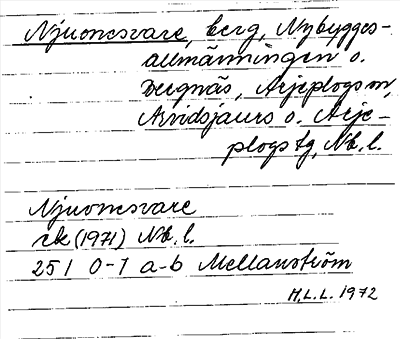 Njuonesvare, berg, Nybygges-
allmänningen o.
Deugnäs, Arjeplogs sn,
Arvidsjaurs o. Arje-
plogs tg, Nb. l.
Njuonesvare
ek (1971) Nb. l.
25 I 0-1 a-b Mellanström
H.L.L. 1972